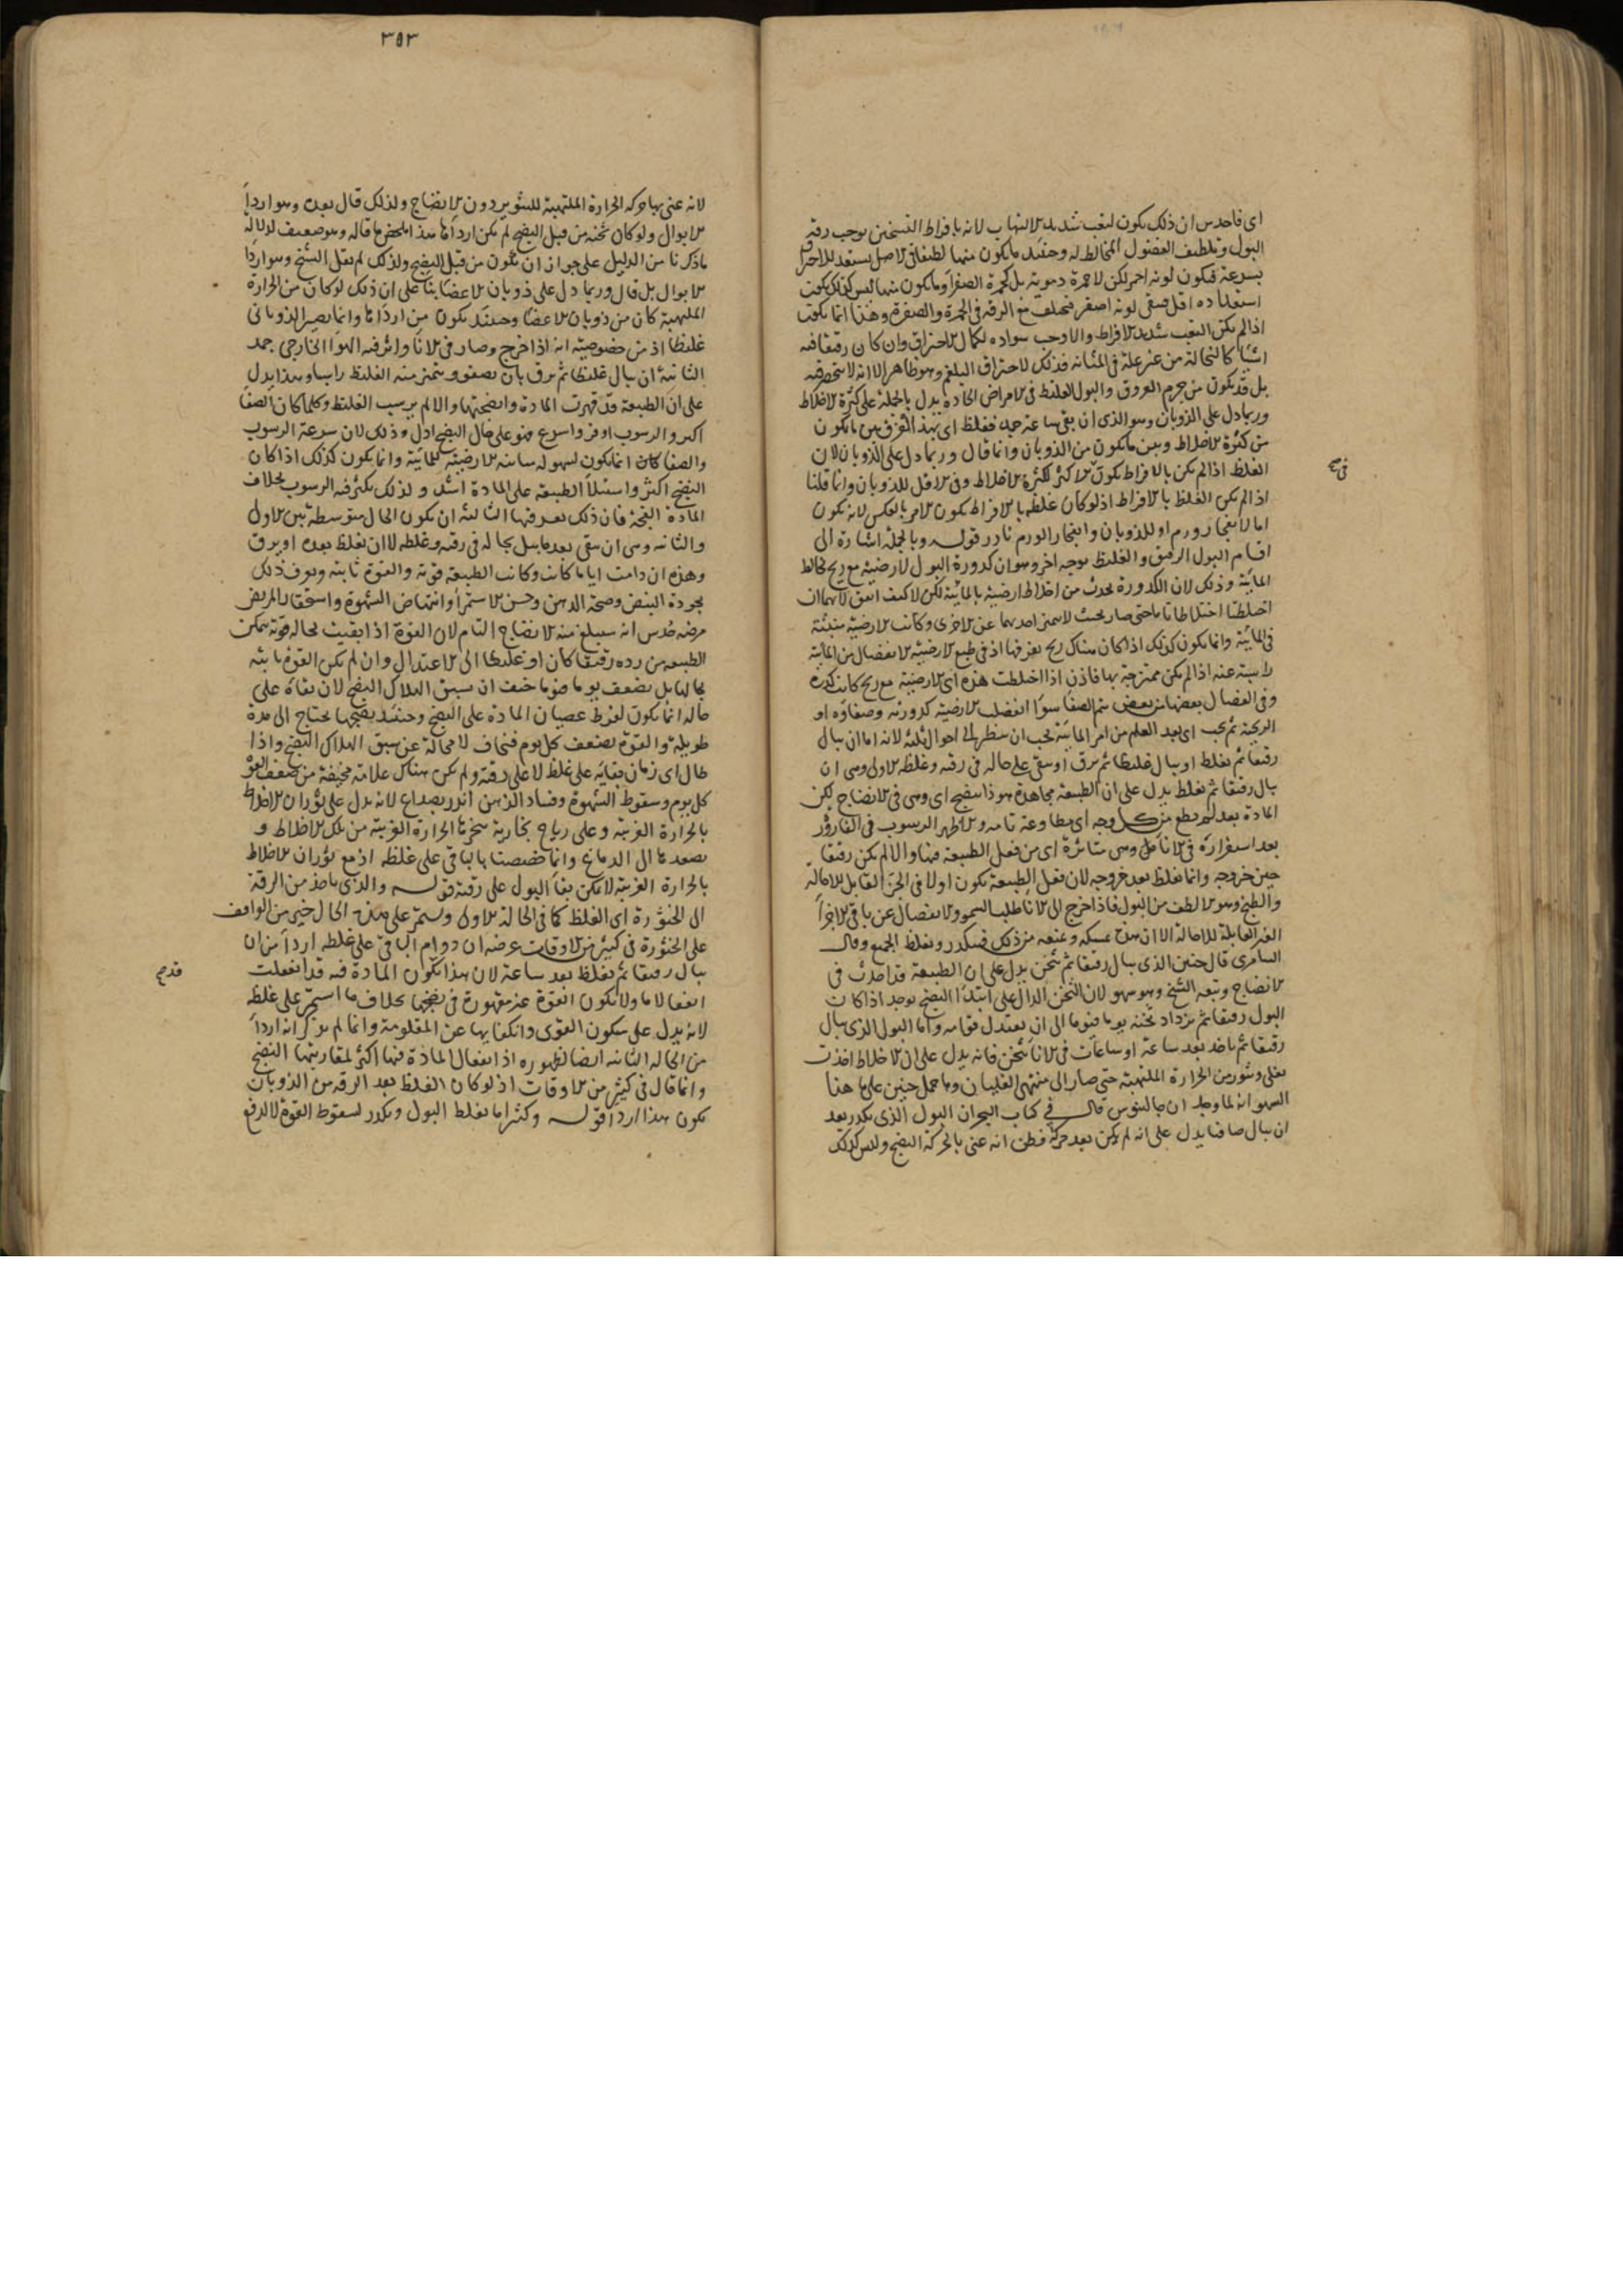 اى فاحدس ان ذلك يكون لتعب شديد الالتهاب لانه بافراط التسخين يوجب رقة
البول وتلطيف الفضول المخالطة له وحينئذ ما يكون منها لطيفا فى الاصل يستعد للاحتراق
بسرعة فيكون لونه احمر لكن لا حمرة دموية بل كحمرة الصفراء وما يكون منها ليس كذلك يكون
استعداده اقل فيبقى لونه اصفر فيختلف مع الرقة فى الحمرة والصفرة وهذا انما يكون
اذا لم يكن التعب شديد الافراط والا وجب سواده لكمال الاحتراق وان كان رقيقا فيه
اشياء كالنخالة من غير علة فى المثانة فذلك لاحتراق البلغم وهو ظاهر الا انه لا ينحصر فيه
بل قد يكون من جرم العروق والبول الغليظ فى الامراض الحادة يدل بالجملة على كثرة الاخلاط
وربما دل على الذوبان وهو الذى ان بقى ساعة جمد فغلظ اى بهذا الفرق بين ما يكون
من كثرة الاخلاط وبين ما يكون من الذوبان وانما قال وربما دل على الذوبان لان
الغلظ اذا لم يكن بالافراط يكون الاكثر لكثرة الاخلاط وفى الاقل للذوبان وانما قلنا
اذا لم يكن الغلظ بالافراط اذ لو كان غلظه بالافراط يكون الامر بالعكس لانه يكون
اما لانفجار ورم او للذوبان وانفجار الورم نادر قوله وبالجملة اشارة الى
اقسام البول الرقيق والغليظ بوجه اخر وهو ان كدورة البول لارضية مع ريح تخالط
المائية وذلك لان الكدورة تحدث من اختلاط ارضية بالمائية لكن لا كيف اتفق لانهما ان
اختلطتا اختلاطا تاما حتى صار بحيث لا يتميز احديهما عن الاخرى وكانت الارضية منبثة
فى المائية وانما يكون كذلك اذا كان هناك ريح يفرقها اذ فى طبع الارضية الانفصال من المائية
راسبة عنه اذا لم يكن ممتزجة بها فاذن اذا اختلطت هذه اى الارضية مع ريح كانت كدرة
وفى انفصال بعضها من بعض يتم الصفاء سواء انفصلت الارضية كدورته وصفاؤه او
الريحية ثم يجب اى بعد العلم من امر المائية يجب ان ينظر الى احوال ثلثة لانه اما ان يبال
رقيقا ثم يغلظ او يبال غليظا ثم يرق او يبقى على حاله فى رقته وغلظه الاولى وهى ان
يبال رقيقا ثم يغلظ يدل على ان الطبيعة مجاهدة هو ذا ينضج اى وهى فى الانضاج لكن
المادة بعد لم يطع من كل وجه اى مطاوعة تامة والا لظهر الرسوب فى القارورة
بعد استقراره فى الاناء بل وهى متاثرة اى من فعل الطبيعة فيها والا لم يكن رقيقا
حين خروجه وانما يغلظ بعد خروجه لان فعل الطبيعة يكون اولا فى الجزء القابل للاحالة
والطبخ وهو الالطف من البول فاذا خرج الى الاناء طلب السمو والانفصال عن باقى الاجزاء
الغير القابلة للاحالة الا ان يمسكه ويمنعه من ذلك فيتكدر ويغلظ الجميع وقال
السامرى قال حنين الذى يبال رقيقا ثم يثخن يدل على ان الطبيعة قد اخذت فى
الانضاج وتبعه الشيخ وهو سهو لان الثخن الدال على ابتداء النضج يوجد اذا كان
البول رقيقا ثم يزداد ثخنه يوما فيوما الى ان يعتدل قوامه واما البول الذى يبال
رقيقا ثم ياخذ بعد ساعة او ساعات فى الاناء يثخن فانه يدل على ان الاخلاط اخذت
تغلى وتثور من الحرارة الملتهبة حتى صار الى منتهى الغليان وما حمل حنين على هذا
السهو انه لما وجد ان جالينوس قال فى كتاب البحران البول الذى يكدر بعد
ان يبال صافيا يدل على انه لم يكن بعد حركة فظن انه عنى بالحركة النضج وليس كذلك
٣٥٣
لانه عنى بها حركة الحرارة الملتهبة للتثوير دون الانضاج ولذلك قال بعده وهو اردأ
الابوال ولو كان ثخنه من قبل النضج لم يكن اردأها هذا ملخص ما قاله وهو ضعيف لدلالة
ما ذكرنا من الدليل على جواز ان يكون من قبل النضج ولذلك لم يقل الشيخ وهو اردأ
الابوال بل قال وربما دل على ذوبان الاعضاء بناء على ان ذلك لو كان من الحرارة
الملتهبة كان من ذوبان الاعضاء وحينئذ يكون من اردأها وانما يصير الذوبانى
غليظا اذ من خصوصيته انه اذا خرج وصار فى الاناء واثر فيه الهواء الخارجى جمد
الثانية ان يبال غليظا ثم يرق بان يصفو ويتميز منه الغليظ راسبا وهذا يدل
على ان الطبيعة قد قهرت المادة وانضجتها والا لم يرسب الغليظ وكلما كان الصفا
اكثر والرسوب اوفر واسرع فهو على حال النضج ادل وذلك لان سرعة الرسوب
والصفا كان انما يكون لسهولة مباينة الارضية للمائية وانما يكون كذلك اذا كان
النضج اكثر واستيلاء الطبيعة على المادة اشد ولذلك يكثر فيه الرسوب بخلاف
المادة الفجة فان ذلك يعسر فيها الثالثة ان يكون الحال متوسطة بين الاولى
والثانية وهى ان يبقى بعد ما يبل بحاله فى رقته وغلظه لا ان يغلظ بعده او يرق
وهذه ان دامت اياما كانت وكانت الطبيعة قوية والقوة ثابتة ويعرف ذلك
بجودة النبض وصحة الذهن وحسن الاستمراء وانتهاض الشهوة واستحقار المريض
مرضه حدس انه سيبلغ منه الانضاج التام لان القوة اذا بقيت بحاله قوية تمكن
الطبيعة من رده رقيقا كان او غليظا الى الاعتدال وان لم يكن القوة ثابتة
بحالها بل يضعف يوما فيوما خيف ان يسبق الهلاك النضج لان بقاه على
حاله انما يكون لفرط عصيان المادة على النضج وحينئذ نضجها يحتاج الى مدة
طويلة والقوة يضعف كل يوم فيخاف لا محالة عن سبق الهلاك النضج واذا
طال اى زمان بقائه على غلظ لا على رقة ولم يكن هناك علامة مخيفة من ضعف القوة
كل يوم وسقوط الشهوة وفساد الذهن انذر بصداع لانه يدل على ثوران الاخلاط
بالحرارة الغريبة وعلى رياح بخارية سخرتها الحرارة الغريبة من تلك الاخلاط و
يصعدها الى الدماغ وانما خصصنا بالباقى على غلظه اذ مع ثوران الاخلاط
بالحرارة الغريبة لا يمكن بقاء البول على رقته قوله والذى ياخذ من الرقة
الى الخثورة اى الغلظ كما فى الحالة الاولى ويستمر على هذه الحال خير من الواقف
على الخثورة فى كثير من الاوقات عرضه ان دوام الباقى على غلظه اردأ من ان
يبال رقيقا ثم يغلظ بعد ساعة لان هذا يكون المادة فيه قد انفعلت
انفعالا ما ولا يكون القوة غير مقهورة فى نضجها بخلاف ما استمر على غلظه
لانه يدل على سكون القوى وانكفائها عن المقاومة وانما لم يذكر انه اردأ
من الحالة الثانية ايضا لظهوره اذ انفعال المادة فيها اكثر لمقاربتها النضج
وانما قال فى كثير من الاوقات اذ لو كان الغلظ بعد الرقة من الذوبان
يكون هذا اردأ قوله وكثيرا ما يغلظ البول ويكدر لسقوط القوة لا لدفع